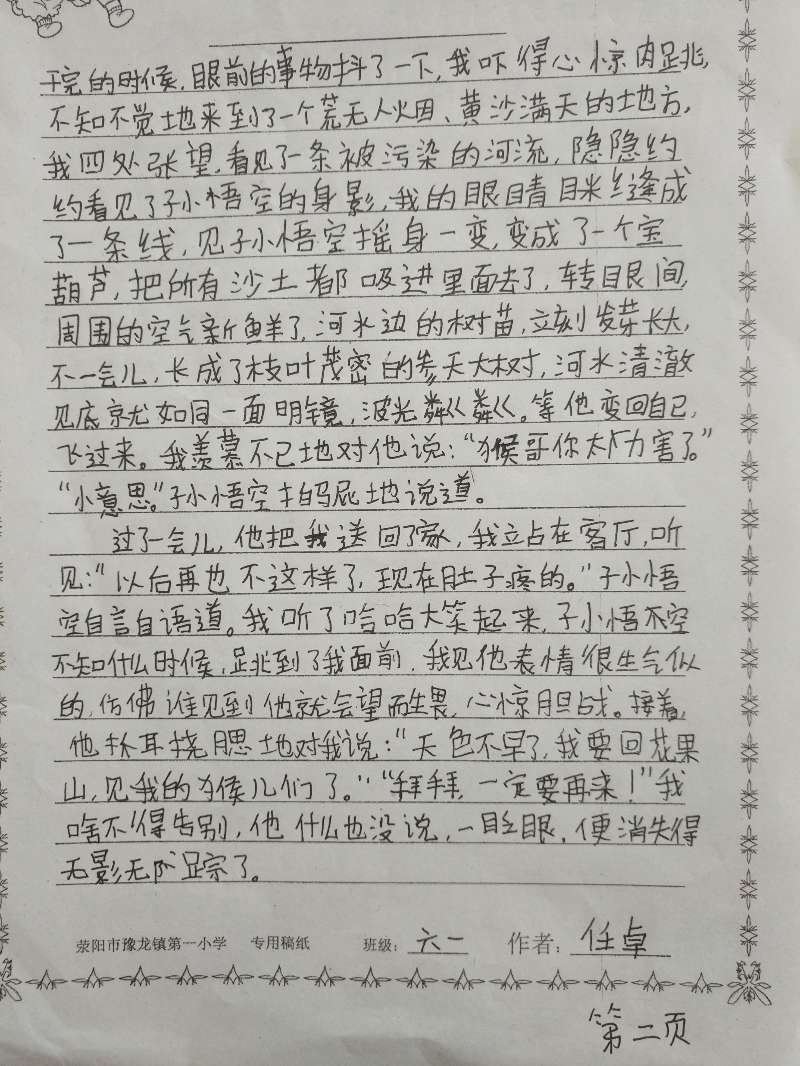 完的时候，眼前的事物抖了一下，我吓得心惊肉跳，
不知不觉地来到了一个荒无人烟、黄沙满天的地方，
我四处张望，看见了一条被污染的河流，隐隐约
约看见了孙悟空的身影，我的眼睛眯缝成
了一条线，见孙悟空摇身一变，变成了一个宝
葫芦，把所有沙土都吸进里面去了，转眼间，
周围的空气新鲜了，河水边的树苗，立刻发芽长大，
不一会儿，长成了枝叶茂密的参天大树，河水清澈
见底就如同一面明镜，波光粼粼。等他变回自己，
飞过来。我羡慕不已地对他说：“猴哥你太力害了。”
“小意思。”孙悟空拍马屁地说道。
过了一会儿，他把我送回了家，我站在客厅，听
见：“以后再也不这样了，现在肚子疼的。”孙悟
空自言自语道。我听了哈哈大笑起来，孙悟不空
不知什么时候，跳到了我面前，我见他表情很生气似
的，仿佛谁见到他就会望而生畏，心惊胆战。接着，
他抓耳挠腮地对我说：“天色不早了，我要回花果
山，见我的猴儿们了。”“拜拜，一定要再来！”我
啥不得告别，他什么也没说，一眨眼，便消失得
无影无踪了。
荥阳市豫龙镇第一小学 专用稿纸 班级：六一 作者：任卓
第二页